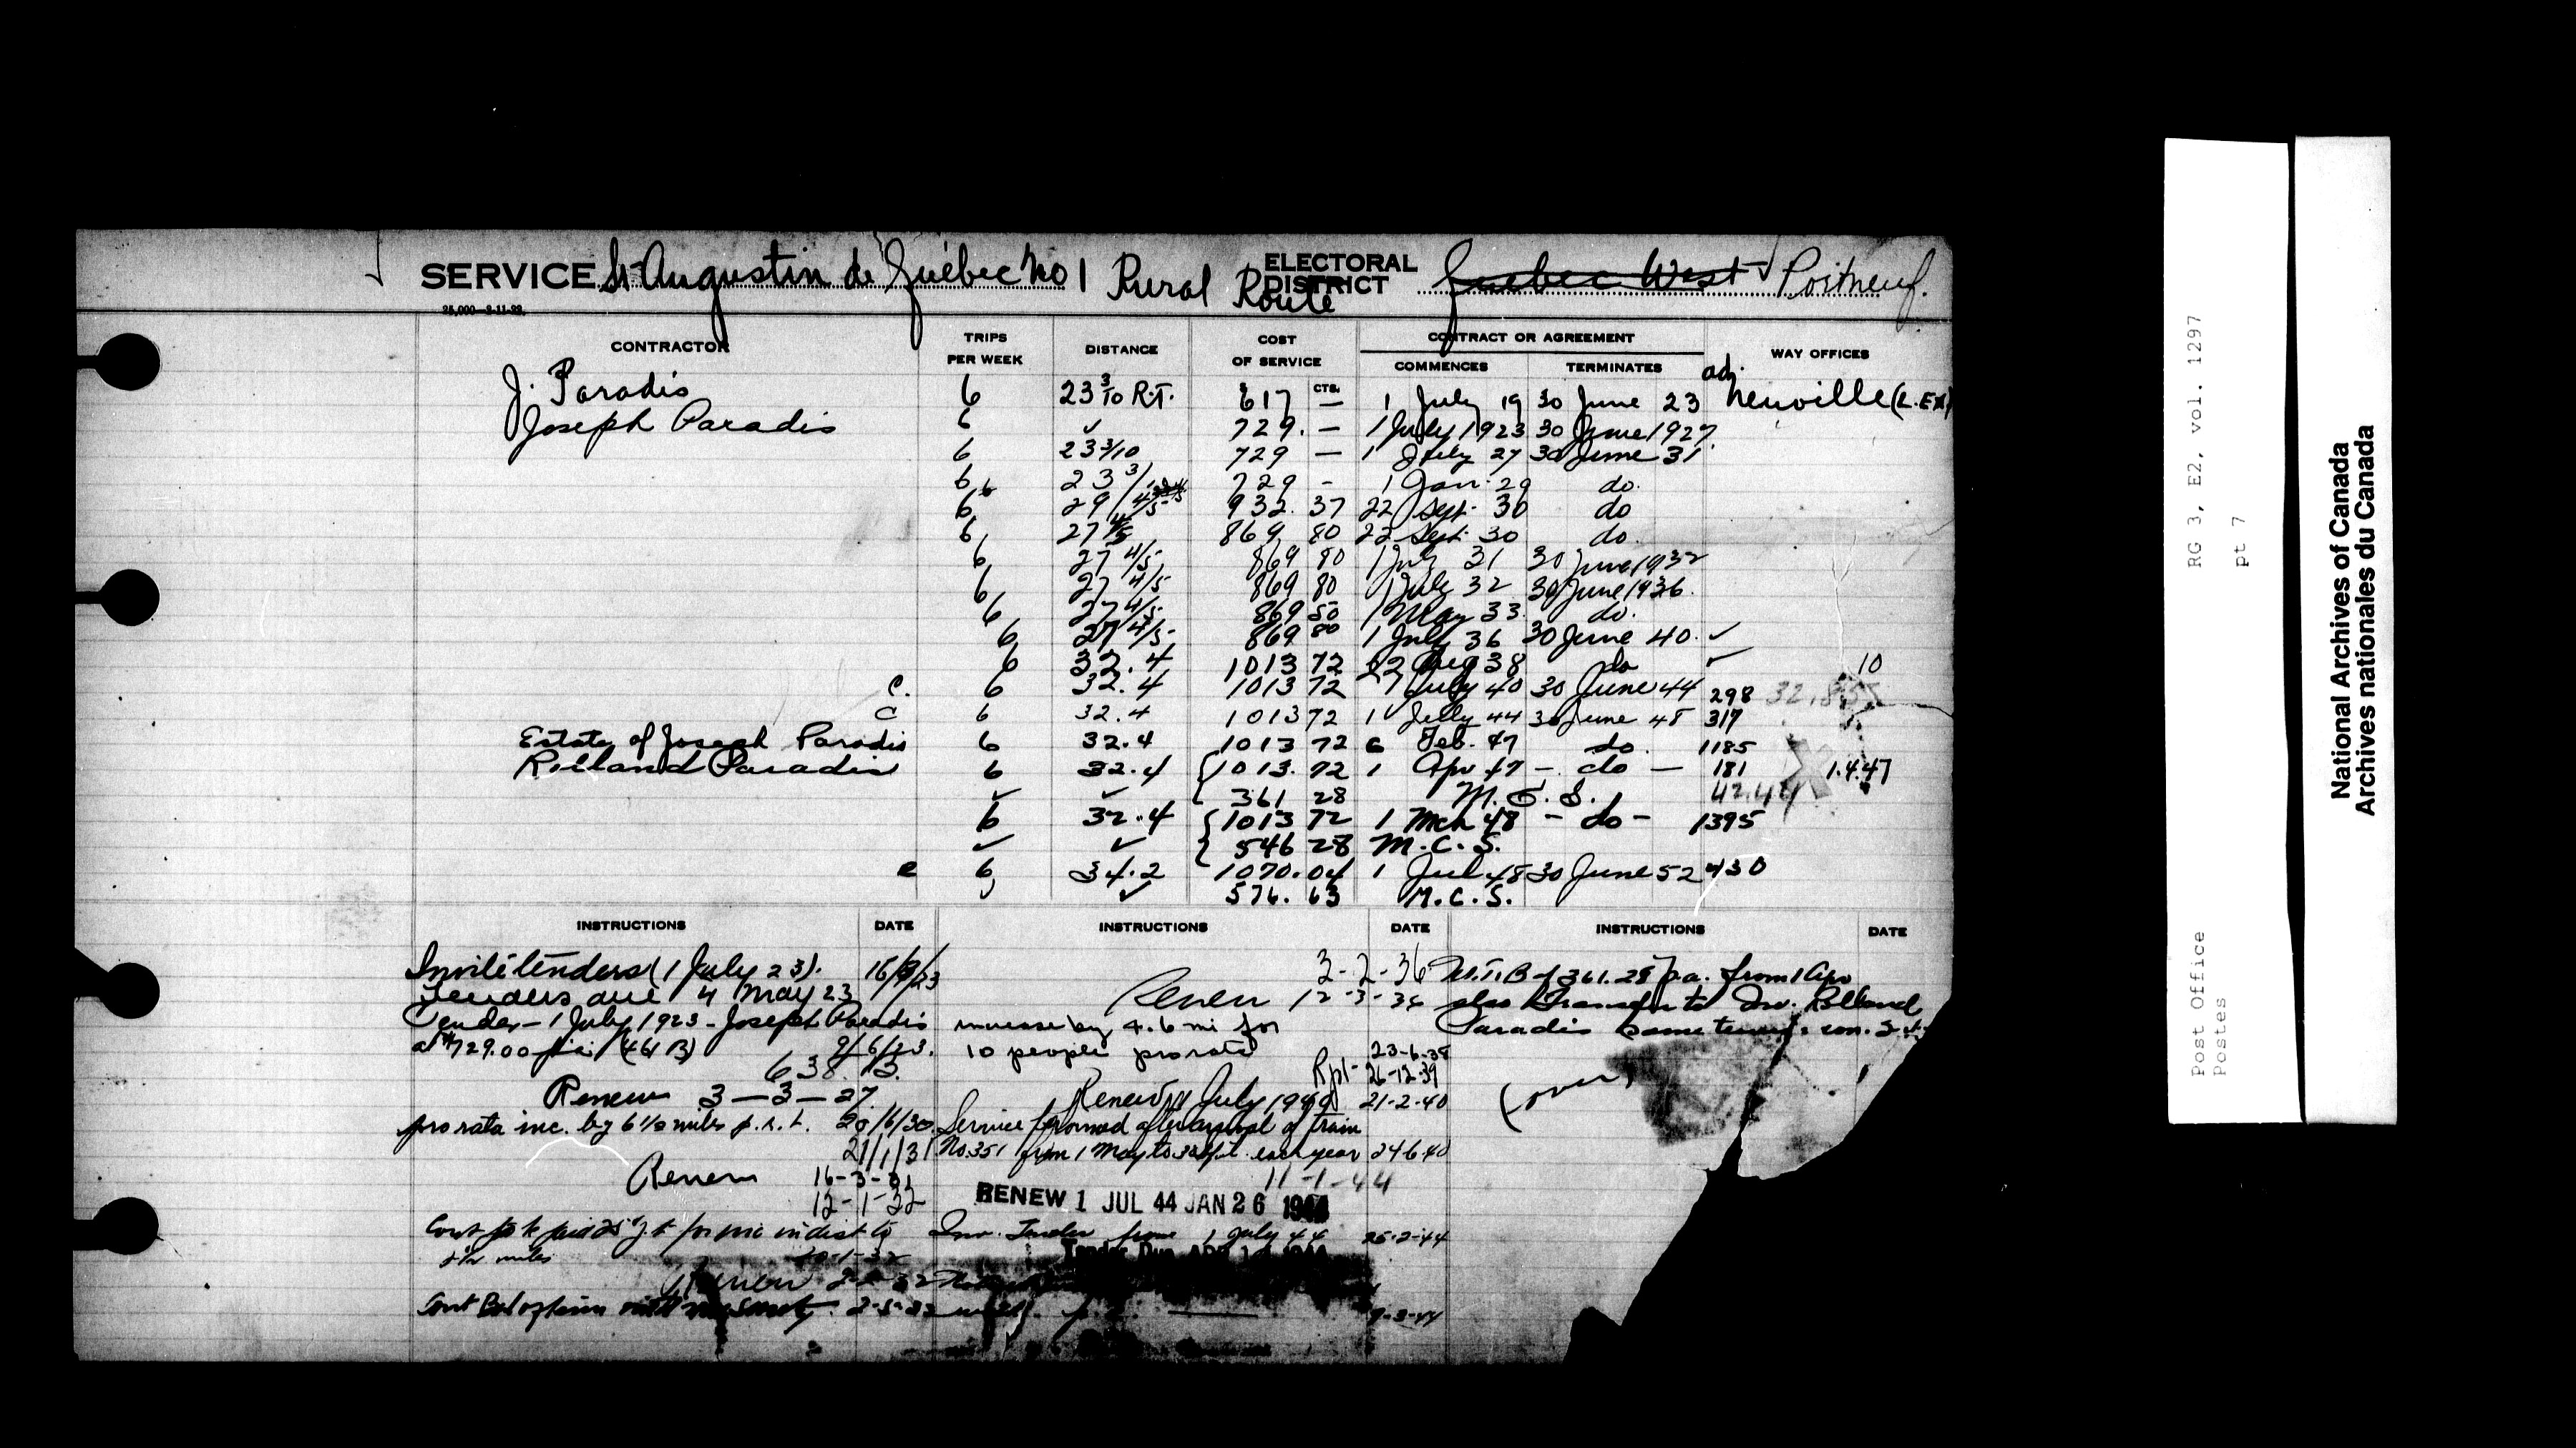 SERVICE St Augustin de Québec No 1 Rural Route ELECTORAL DISTRICT Quebec West Portneuf.
25,000-2-11-22.
CONTRACTOR TRIPS PER WEEK DISTANCE COST OF SERVICE CONTRACT OR AGREEMENT WAY OFFICES
COMMENCES TERMINATES
CTS.
J. Paradis 6 23 3/10 R.T. 617 — 1 July 19 30 June 23 adj. Neuville (L.EX)
Joseph Paradis 6 ✓ 729. — 1 July 1923 30 June 1927
6 23 3/10 729 — 1 July 27 30 June 31
6 23 3/ 729 - 1 Jan. 29 do.
6 29 4/5 932. 37 22 Sept. 30 do
6 27 4/5 869 80 22 Sept. 30 do.
6 27 4/5 869 80 1 July 31 30 June 1932
6 27 4/5 869 80 1 July 32 30 June 1936.
6 27 4/5 869 50 1 May 33. do.
6 27 4/5 869 80 1 July 36 30 June 40. ✓
6 32.4 1013 72 22 Aug 38 do ✓ 10
C. 6 32.4 1013 72 1 July 40 30 June 44 298
C 6 32.4 1013 72 1 July 44 30 June 48 317
Estate of Joseph Paradis 6 32.4 1013 72 6 Feb. 47 do. 1185
Rolland Paradis 6 32.4 1013. 72 1 Apr 47 - do - 181 1.4.47
✓ ✓ 361 28 M.C.S. 42.44
6 32.4 1013 72 1 Mch 48 - do - 1395
✓ ✓ 546 28 M.C.S.
c 6 34.2 1070.04 1 Jul 48 30 June 52 430
✓ 576. 63 M.C.S.
INSTRUCTIONS DATE INSTRUCTIONS DATE INSTRUCTIONS DATE
Invite tenders (1 July 23). 16/3/23
Tenders due 4 May 23
Tender - 1 July 1923 - Joseph Paradis
at $729.00 (461 B) 9/6/23.
638. B.
Renew 3-3-27
pro rata inc. by 6 1/2 miles p.r.t. 20/6/30
21/1/31
Renew 16-3-31
12-1-32
miles
Renew
3-2-36
Renew 12-3-36
increase by 4.6 mi for
10 people pro rata 23-6-38
Rpt- 26-12-39
Renew July 1940 21-2-40
Service performed after arrival of train
No. 351 from 1 May to 30 Sept. each year 24 6 40
11-1-44
RENEW 1 JUL 44 JAN 26 1944
Inv. Tender from 1 July 44 25-2-44
Tender Due
9-3-44
M.C.B of 361.28 p.a. from 1 Apr
also transfer to Rolland
Paradis same terms
(over)
RG 3, E2, vol. 1297
pt 7
Post Office
Postes
National Archives of Canada
Archives nationales du Canada